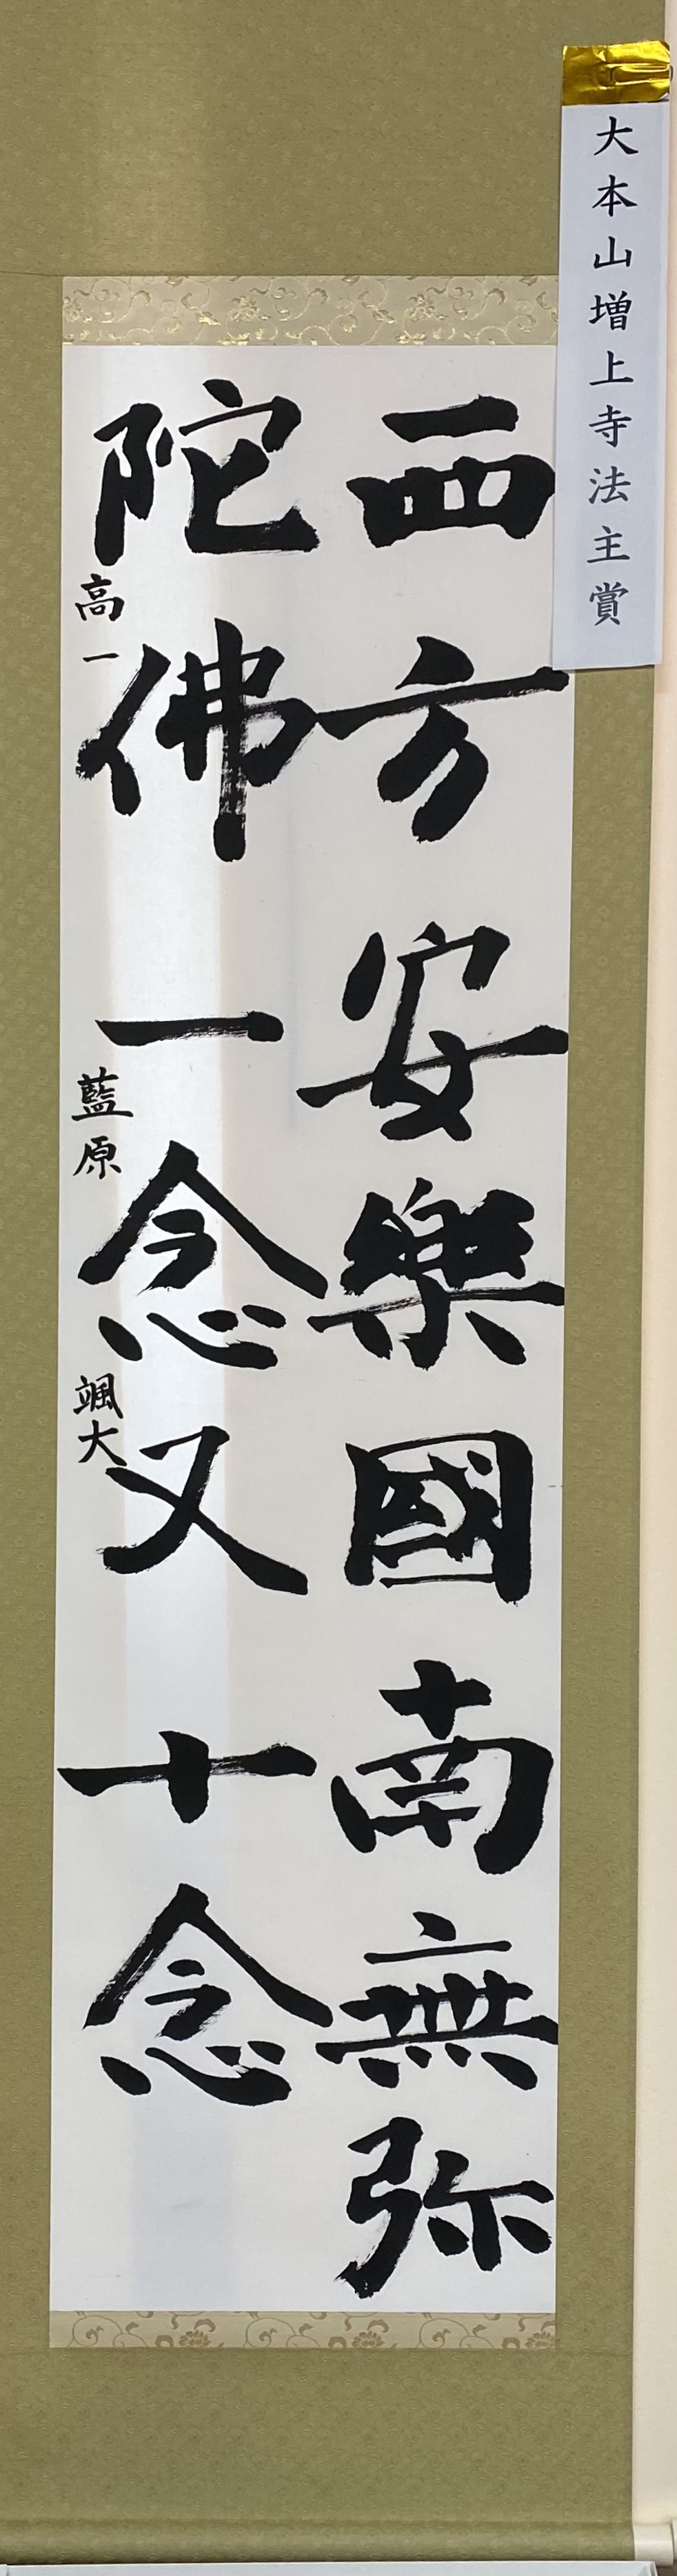 大本山増上寺法主賞
西方安樂國南無弥
陀佛一念又十念
高一 藍原颯大